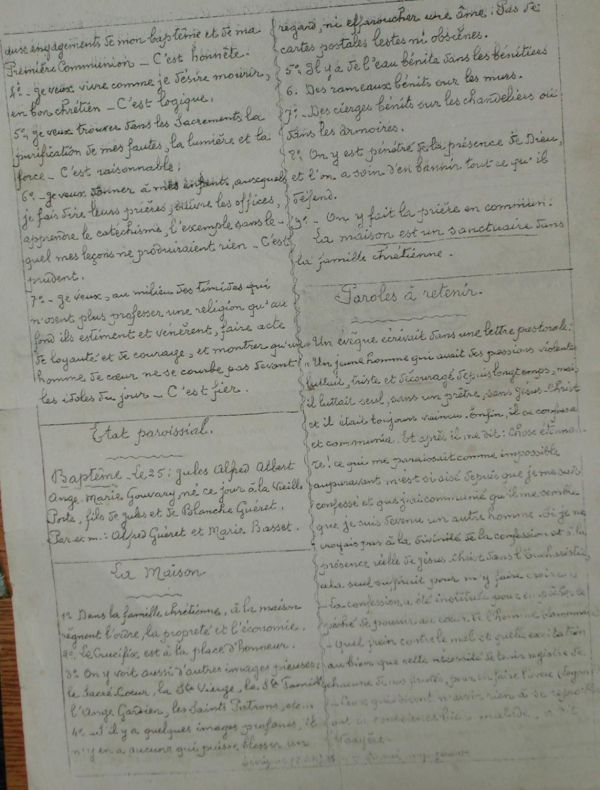 aux engagements de mon baptême et de ma
Première Communion – C'est honnête.
4º – Je veux vivre comme je désire mourir,
en bon chrétien – C'est logique.
5º – Je veux trouver dans les Sacrements la
purification de mes fautes, la lumière et la
force – C'est raisonnable;
6º – Je veux donner à mes enfants, auxquels
je fais dire leurs prières, suivre les offices,
apprendre le catéchisme, l'exemple sans le-
quel mes leçons ne produiraient rien – C'est
prudent.
7º – Je veux, au milieu des timides qui
n'osent plus professer une religion qu'au
fond ils estiment et vénèrent, faire acte
de loyauté et de courage, et montrer qu'un
homme de cœur ne se courbe pas devant
les idoles du jour – C'est fier.
Etat paroissial.
Baptême – Le 25: Jules Alfred Albert
Ange Marie Gouvary, né ce jour à la Vieille
Porte, fils de Jules et de Blanche Guéret.
Par. et m.: Alfred Guéret et Marie Basset.
La Maison
1º Dans la famille chrétienne, à la maison
règnent l'ordre, la propreté et l'économie.
2º Le Crucifix est à la place d'honneur.
3º On y voit aussi d'autres images pieuses:
le Sacré Coeur, la Ste Vierge, la Ste Famille
l'Ange Gardien, les Saints Patrons, etc...
4º S'il y a quelques images profanes, il
n'y en a aucune qui puisse blesser un
regard, ni effaroucher une âme: Pas de
cartes postales lestes ni obscènes.
5º Il y a de l'eau bénite dans les bénitiers
6. Des rameaux bénits sur les murs.
7º – Des cierges bénits sur les chandeliers ou
dans les armoires.
8º On y est pénétré de la présence de Dieu,
et l'on a soin d'en bannir tout ce qu'il
défend.
9º – On y fait la prière en commun:
La maison est un sanctuaire dans
la famille chrétienne.
Paroles à retenir.
Un évêque écrivait dans une lettre pastorale:
"Un jeune homme qui avait des passions violentes
luttait, triste et découragé depuis longtemps, mais
il luttait seul, sans un prêtre, sans Jésus-Christ
et il était toujours vaincu. Enfin, il se confessa
et communia. Et après il me dit: Chose étonnan-
te! ce qui me paraissait comme impossible
auparavant m'est si aisé depuis que je me suis
confessé et que j'ai communié qu'il me semble
que je suis devenu un autre homme. Si je ne
croyais pas à la divinité de la confession et à la
présence réelle de Jésus-Christ dans l'Eucharistie
cela seul suffirait pour m'y faire croire.
La confession a été instituée pour empêcher le
péché de pourrir au cœur de l'homme
Quel frein contre le mal et quelle excitation
au bien que cette nécessité de tenir registre de
chacune de nos fautes, pour en faire l'aveu